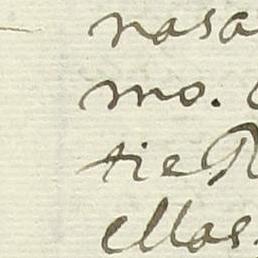 nasa
mo.
tie
ellas